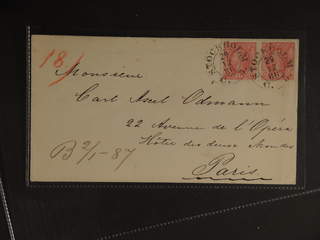 18)
STOCKHOLM
STOCKHOLM
Monsieur
Carl Axel Odmann
22 Avenue de l'Opéra
Hôtel des deux Mondes
Paris
B 2/1-87